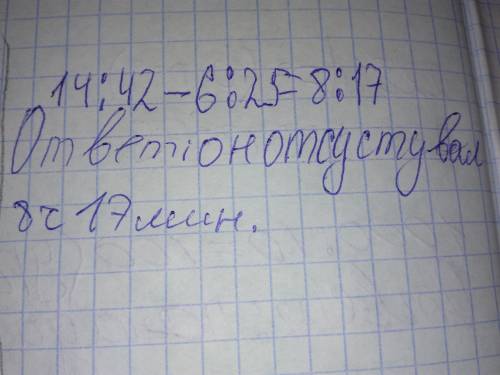 14:42-6:25=8:17
Ответ:он отсуствувал
8ч 17мин.